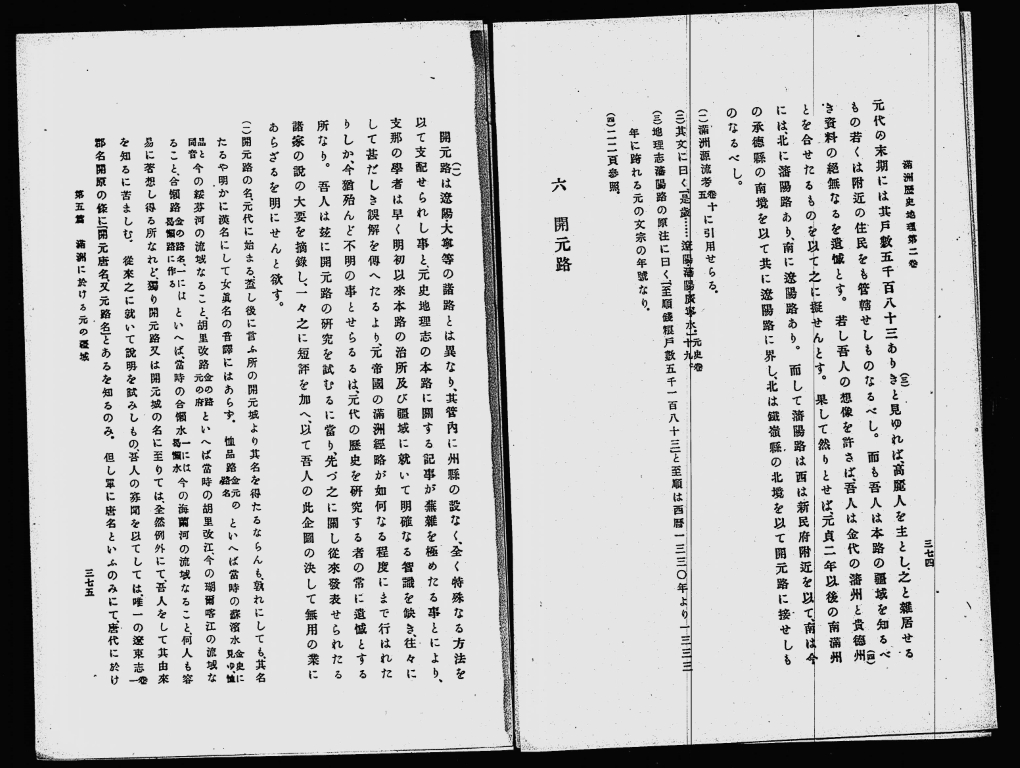 滿洲歷史地理第二卷
三七四
元代の末期には其戶數五千百八十三ありき(三)と見ゆれば、高麗人を主とし、之と雜居せる
もの若くは附近の住民をも管轄せしものなるべし。而も吾人は本路の疆域を知るべ
き資料の絕無なるを遺憾とす。若し吾人の想像を許さば、吾人は金代の瀋州と貴德州(四)
とを合せたるものを以て之に擬せんとす。果して然りとせば、元貞二年以後の南滿州
には、北に瀋陽路あり、南に遼陽路あり。而して瀋陽路は西は新民府附近を以て、南は今
の承德縣の南境を以て共に遼陽路に界し、北は鐵嶺縣の北境を以て開元路に接せしも
のなるべし。
(一)滿洲源流考卷十五に引用せらる。
(二)其文に曰く「是歲……遼陽瀋陽廣寧水」元史卷二十九。
(三)地理志瀋陽路の原注に曰く、「至順錢糧戶數五千一百八十三」と至順は西曆一三三〇年より一三三三
年に跨れる元の文宗の年號なり。
(四)二一二頁參照。
六 開元路
開元路(一)は遼陽、大寧等の諸路とは異なり、其管內に州縣の設なく、全く特殊なる方法を
以て支配せられし事と、元史地理志の本路に關する記事が蕪雜を極めたる事とにより、
支那の學者は早く明初以來本路の治所及び疆域に就いて明確なる智識を缺き、往々に
して甚だしき誤解を傳へたるより、元帝國の滿洲經路が如何なる程度にまで行はれた
りしか、今猶殆んど不明の事とせらるゝは、元代の歷史を硏究する者の常に遺憾とする
所なり。吾人は玆に開元路の硏究を試むるに當り、先づ之に關し從來發表せられたる
諸家の說の大要を摘錄し、一々之に短評を加へ、以て吾人の此企圖の決して無用の業に
あらざるを明にせんと欲す。
(一)開元路の名、元代に始まる、蓋し後に言ふ所の開元城より其名を得たるならんも、孰れにしても、其名
たるや明かに漢名にして女眞名の音譯にはあらず。恤品路金元の路名といへば當時の蘇濱水金史に見ゆ、恤
品と同音今の綏芬河の流域なること、胡里改路金の路元の府といへば當時の胡里改江、今の瑚爾喀江の流域な
ること、合懶路金の路名、一には曷懶路に作るといへば、當時の合懶水一には曷懶水今の海蘭河の流域なること、何人も容
易に著想し得る所なれど、獨り開元路又は開元城の名に至りては、全然例外にて、吾人をして其由來
を知るに苦ましむ。從來之に就いて說明を試みしもの、吾人の寡聞を以てしては、唯一の遼東志卷一
郡名開原の條に「開元唐名、又元路名」とあるを知るのみ。但し單に唐名といふのみにて、唐代に於け
第五篇 滿洲に於ける元の疆域
三七五